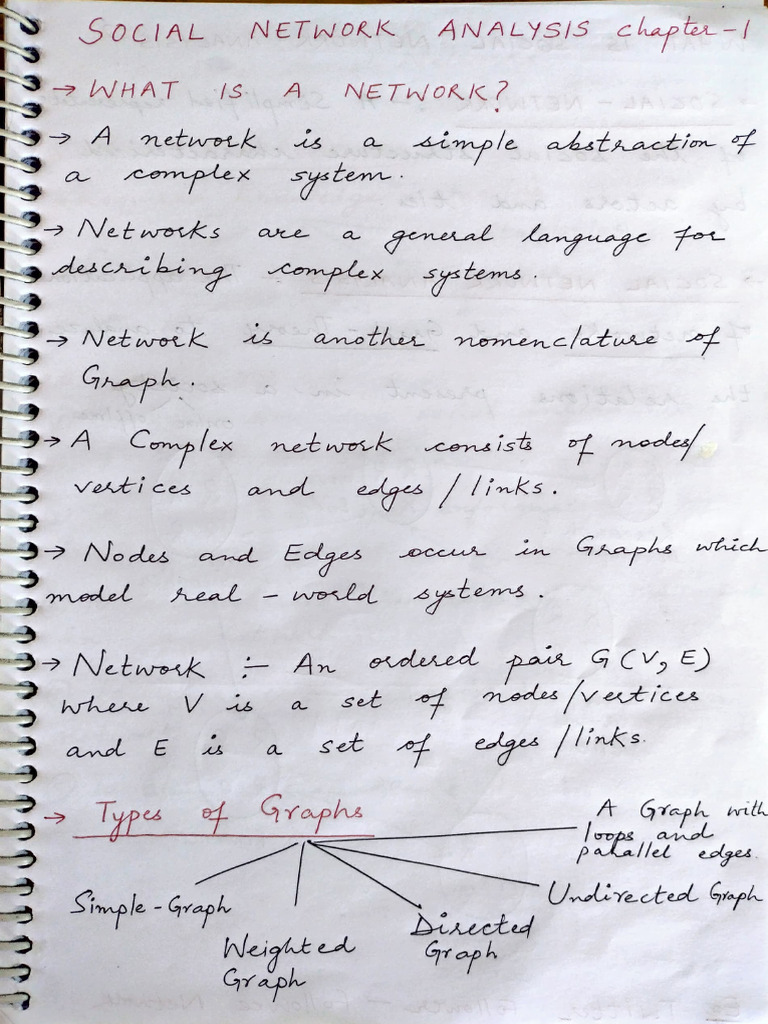 SOCIAL NETWORK ANALYSIS chapter-1
→ WHAT IS A NETWORK?
→ A network is a simple abstraction of
a complex system.
→ Networks are a general language for
describing complex systems.
→ Network is another nomenclature of
Graph.
→ A Complex network consists of nodes/
vertices and edges/links.
→ Nodes and Edges occur in Graphs which
model real-world systems.
→ Network :- An ordered pair G(V, E)
where V is a set of nodes/vertices
and E is a set of edges/links.
→ Types of Graphs
A Graph with
loops and
parallel edges.
Undirected Graph
Simple-Graph
Directed
Graph
Weighted
Graph